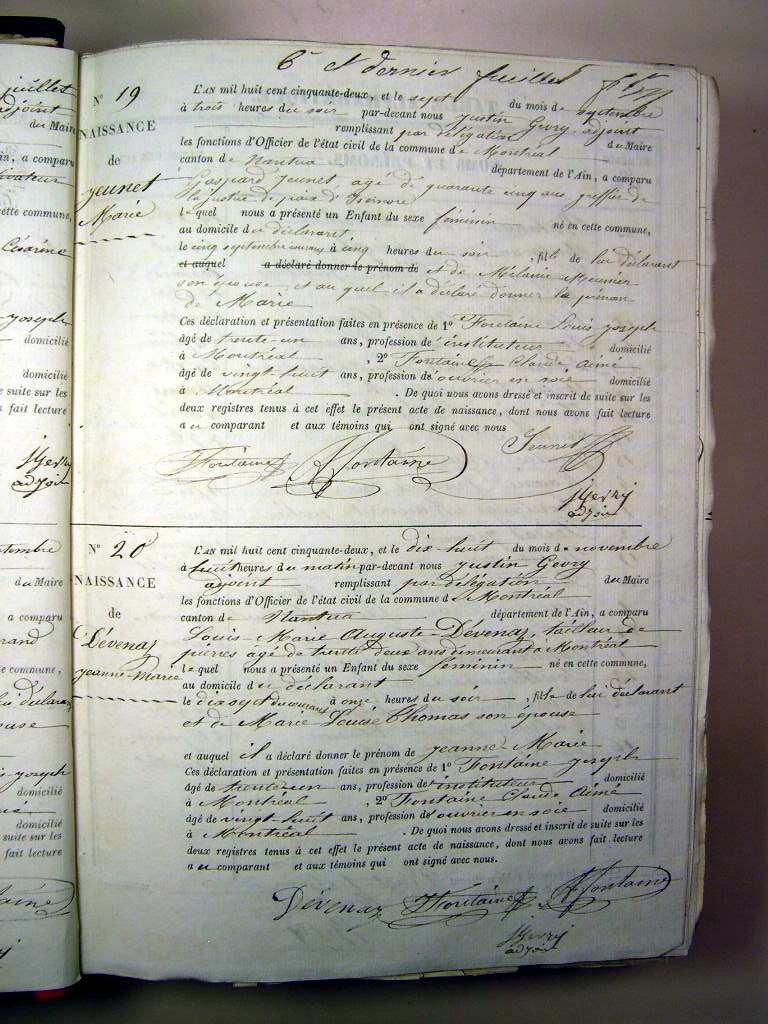 juillet
adjoint
du Maire
in, a comparu
cette commune,
Césarine
Joseph
domicilié
domicilié
suite sur les
fait lecture
JGevry
adjoint
6e et dernier feuillet
N° 19
NAISSANCE
de
Jeunet
Marie
L'AN mil huit cent cinquante-deux, et le sept du mois de septembre
à trois heures du soir par-devant nous Justin Gevry, adjoint
remplissant par délégation du Maire
les fonctions d'Officier de l'état civil de la commune de Montréal
canton de Nantua département de l'Ain, a comparu
Gaspard Jeunet, agé de quarante cinq ans greffier de
la justice de paix d'Izernore
lequel nous a présenté un Enfant du sexe féminin né en cette commune,
au domicile du déclarant,
le cinq septembre courant à cinq heures du soir, fille de lui déclarant
et auquel a déclaré donner le prénom de et de Mélanie Meunier
son épouse, et au quel il a déclaré donner le prénom
de Marie
Ces déclaration et présentation faites en présence de 1° Fontaine Louis Joseph
âgé de trente-un ans, profession d'instituteur domicilié
à Montréal, 2° Fontaine Claude Aimé
âgé de vingt huit ans, profession d'ouvrier en soie domicilié
à Montréal. De quoi nous avons dressé et inscrit de suite sur les
deux registres tenus à cet effet le présent acte de naissance, dont nous avons fait lecture
au comparant et aux témoins qui ont signé avec nous
Jeunet
JFontaine Fontaine
JGevry
adjoint
N° 20
NAISSANCE
de
Dévenaz
Jeanne-Marie
L'AN mil huit cent cinquante-deux, et le dix-huit du mois de novembre
à huit heures du matin par-devant nous Justin Gevry
ajoint remplissant par délégation du Maire
les fonctions d'Officier de l'état civil de la commune de Montréal
canton de Nantua département de l'Ain, a comparu
Louis-Marie Auguste Dévenaz, tailleur de
pierres agé de trente deux ans demeurant à Montréal
lequel nous a présenté un Enfant du sexe féminin né en cette commune,
au domicile du déclarant
le dix sept du courant à onze heures du soir, fille de lui déclarant
et de Marie Louise Thomas son épouse
et auquel il a déclaré donner le prénom de Jeanne Marie
Ces déclaration et présentation faites en présence de 1° Fontaine Joseph
âgé de trente un ans, profession d'instituteur domicilié
à Montréal, 2° Fontaine Claude Aimé
âgé de vingt huit ans, profession d'ouvrier en soie domicilié
à Montréal. De quoi nous avons dressé et inscrit de suite sur les
deux registres tenus à cet effet le présent acte de naissance, dont nous avons fait lecture
au comparant et aux témoins qui ont signé avec nous.
Dévenaz JFontaine Fontaine
JGevry
adjoint